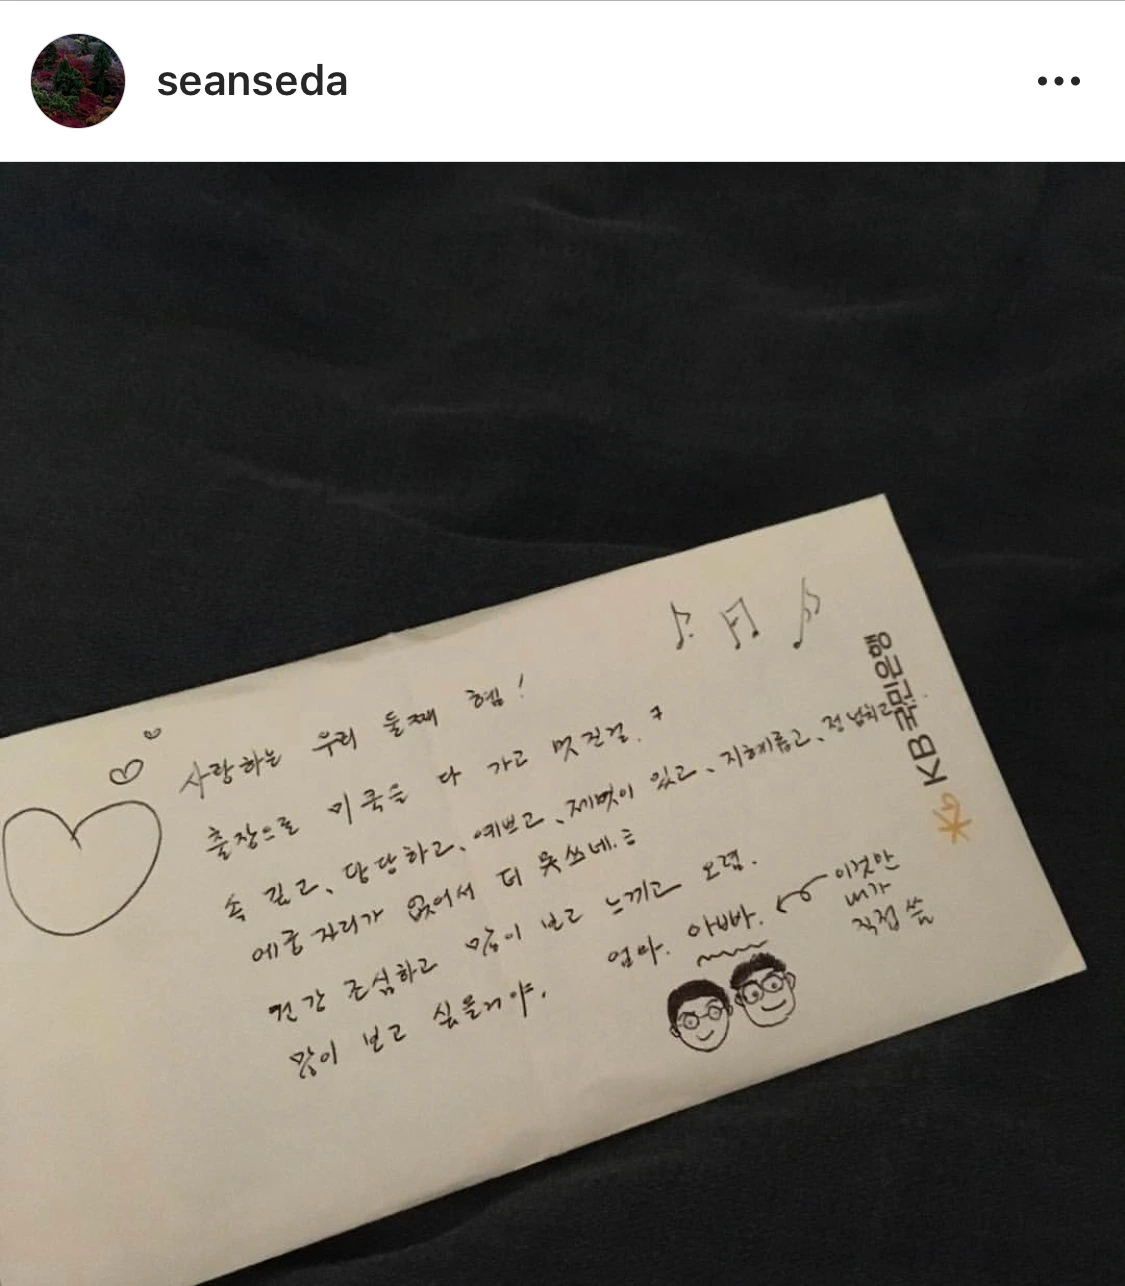 seanseda
사랑하는 우리 둘째 혬!
출장으로 미국을 다 가고 멋진걸.
속 깊고、당당하고、예쁘고、제멋이 있고、지혜롭고、정 넘치고
에궁 자리가 없어서 더 못쓰네.
건강 조심하고 많이 보고 느끼고 오렴.
많이 보고 싶을거야.
엄마. 아빠.
이것만
내가
직접 씀
KB국민은행